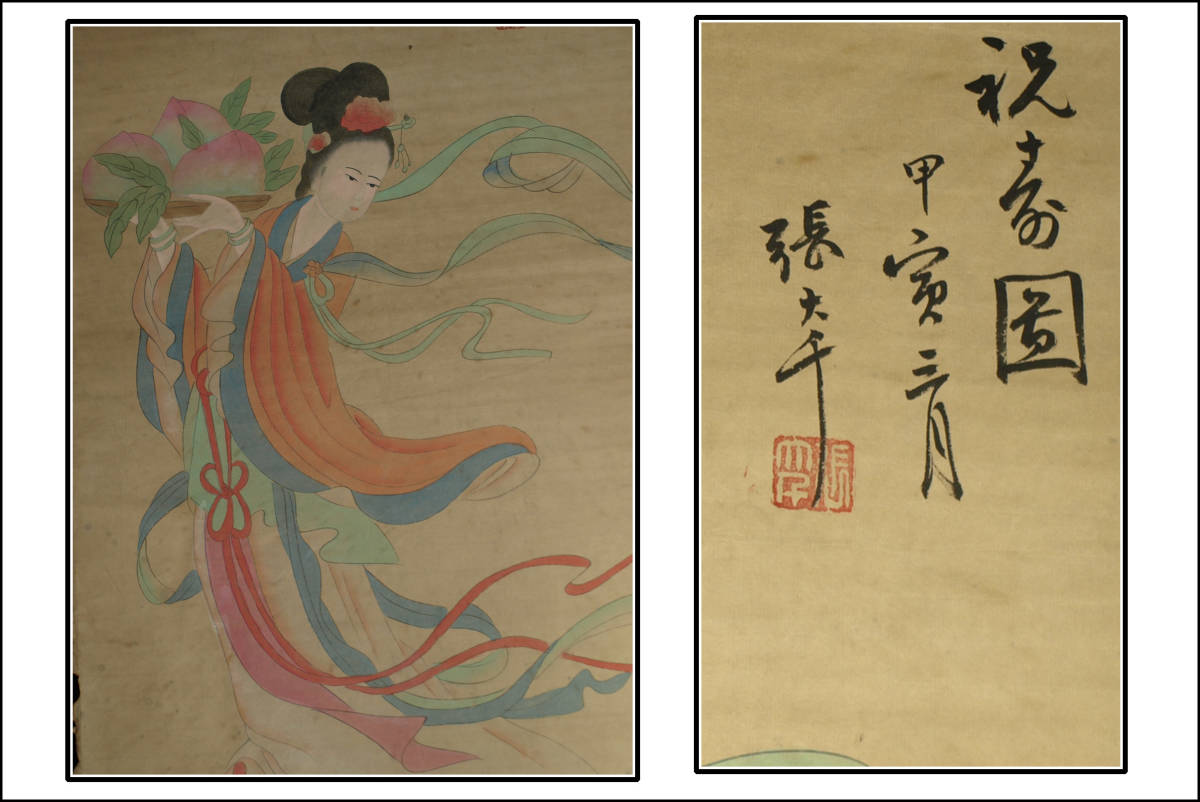 祝寿圖
甲寅三月
張大千